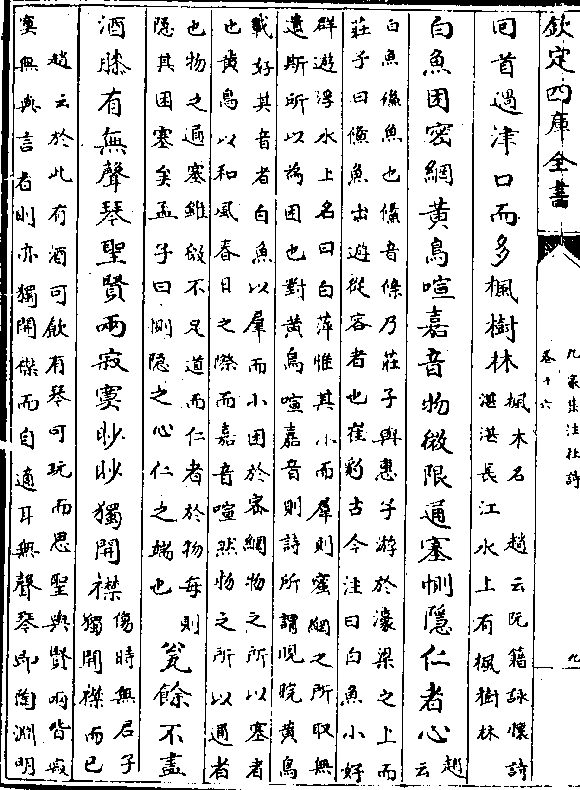 欽定四庫全書
九家集注杜詩
卷十六
九
回首過津口而多楓樹林
楓木名 趙云阮籍詠懷詩
湛湛長江水上有楓樹林
白魚困密網黃鳥喧嘉音物微限通塞惻隱仁者心
趙
云
白魚儵魚也儵音條乃莊子與惠子游於濠梁之上而
莊子曰儵魚出遊從容者也崔豹古今注曰白魚小好
群遊浮水上名曰白萍惟其小而羣則蜜網之所取無
遺斯所以為困也對黃鳥喧嘉音則詩所謂睍睆黃鳥
載好其音者白魚以羣而小困於密網物之所以塞者
也黃鳥以和風春日之際而嘉音喧然物之所以通者
也物之通塞雖微不足道而仁者於物每則
隱其困塞矣孟子曰惻隱之心仁之端也
瓮餘不盡
酒膝有無聲琴聖賢兩寂寞眇眇獨開襟
傷時無君子
獨開襟而已
趙云於此有酒可飲有琴可玩而思聖與賢兩皆寂
寞無與言者則亦獨開襟而自適耳無聲琴即陶淵明